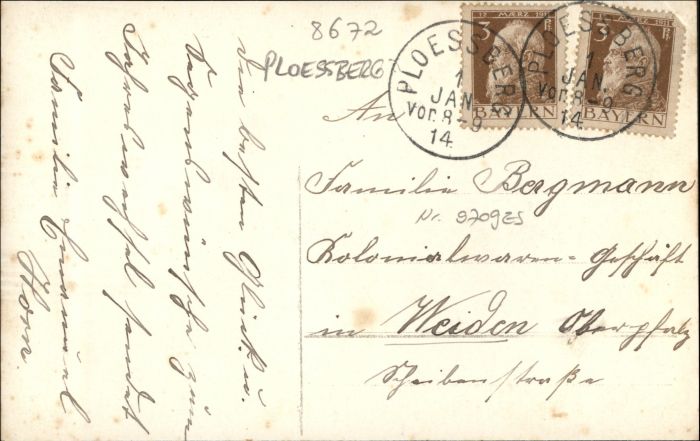 8672
PLOESSBERG
12. MÄRZ 1911
3 Pf
BAYERN
12. MÄRZ 1911
3 Pf
BAYERN
PLOESSBERG
1
JAN
Vor. 8-9
14
PLOESSBERG
1
JAN
Vor. 8-9
14
An
Familie Bergmann
Nr. 9709
Kolonialwaren-Geschäft
in Weiden Oberpfalz
Scheibenstraße
Die besten Glück u.
Segenswünsche zum
Jahreswechsel sendet
Familie Emanuel
Horn.